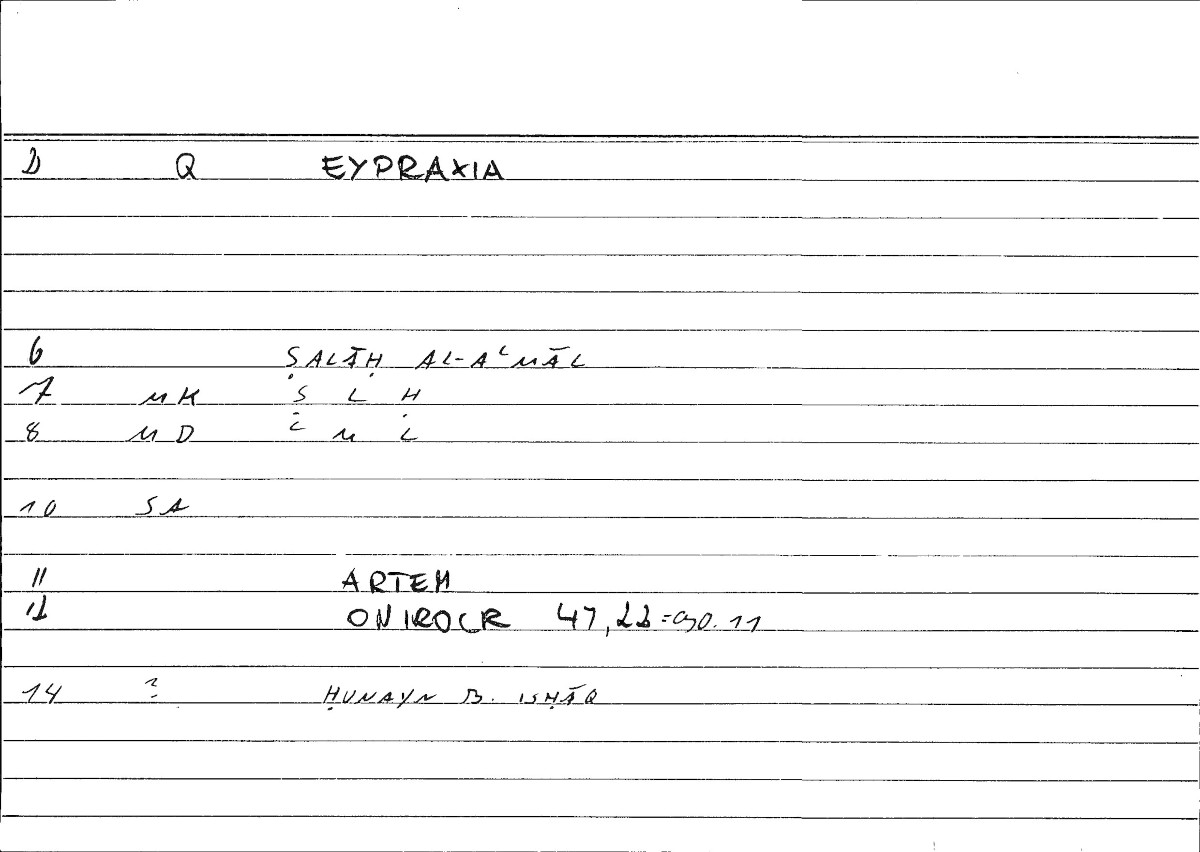 2 Q EYPRAXIA
6 ṢALĀḤ AL-AʿMĀL
7 MK Ṣ L Ḥ
8 MD ʿ M L
10 SA
11 ARTEM
12 ONIROCR 47,22 = 90.11
14 ? ḤUNAYN B. ISḤĀQ